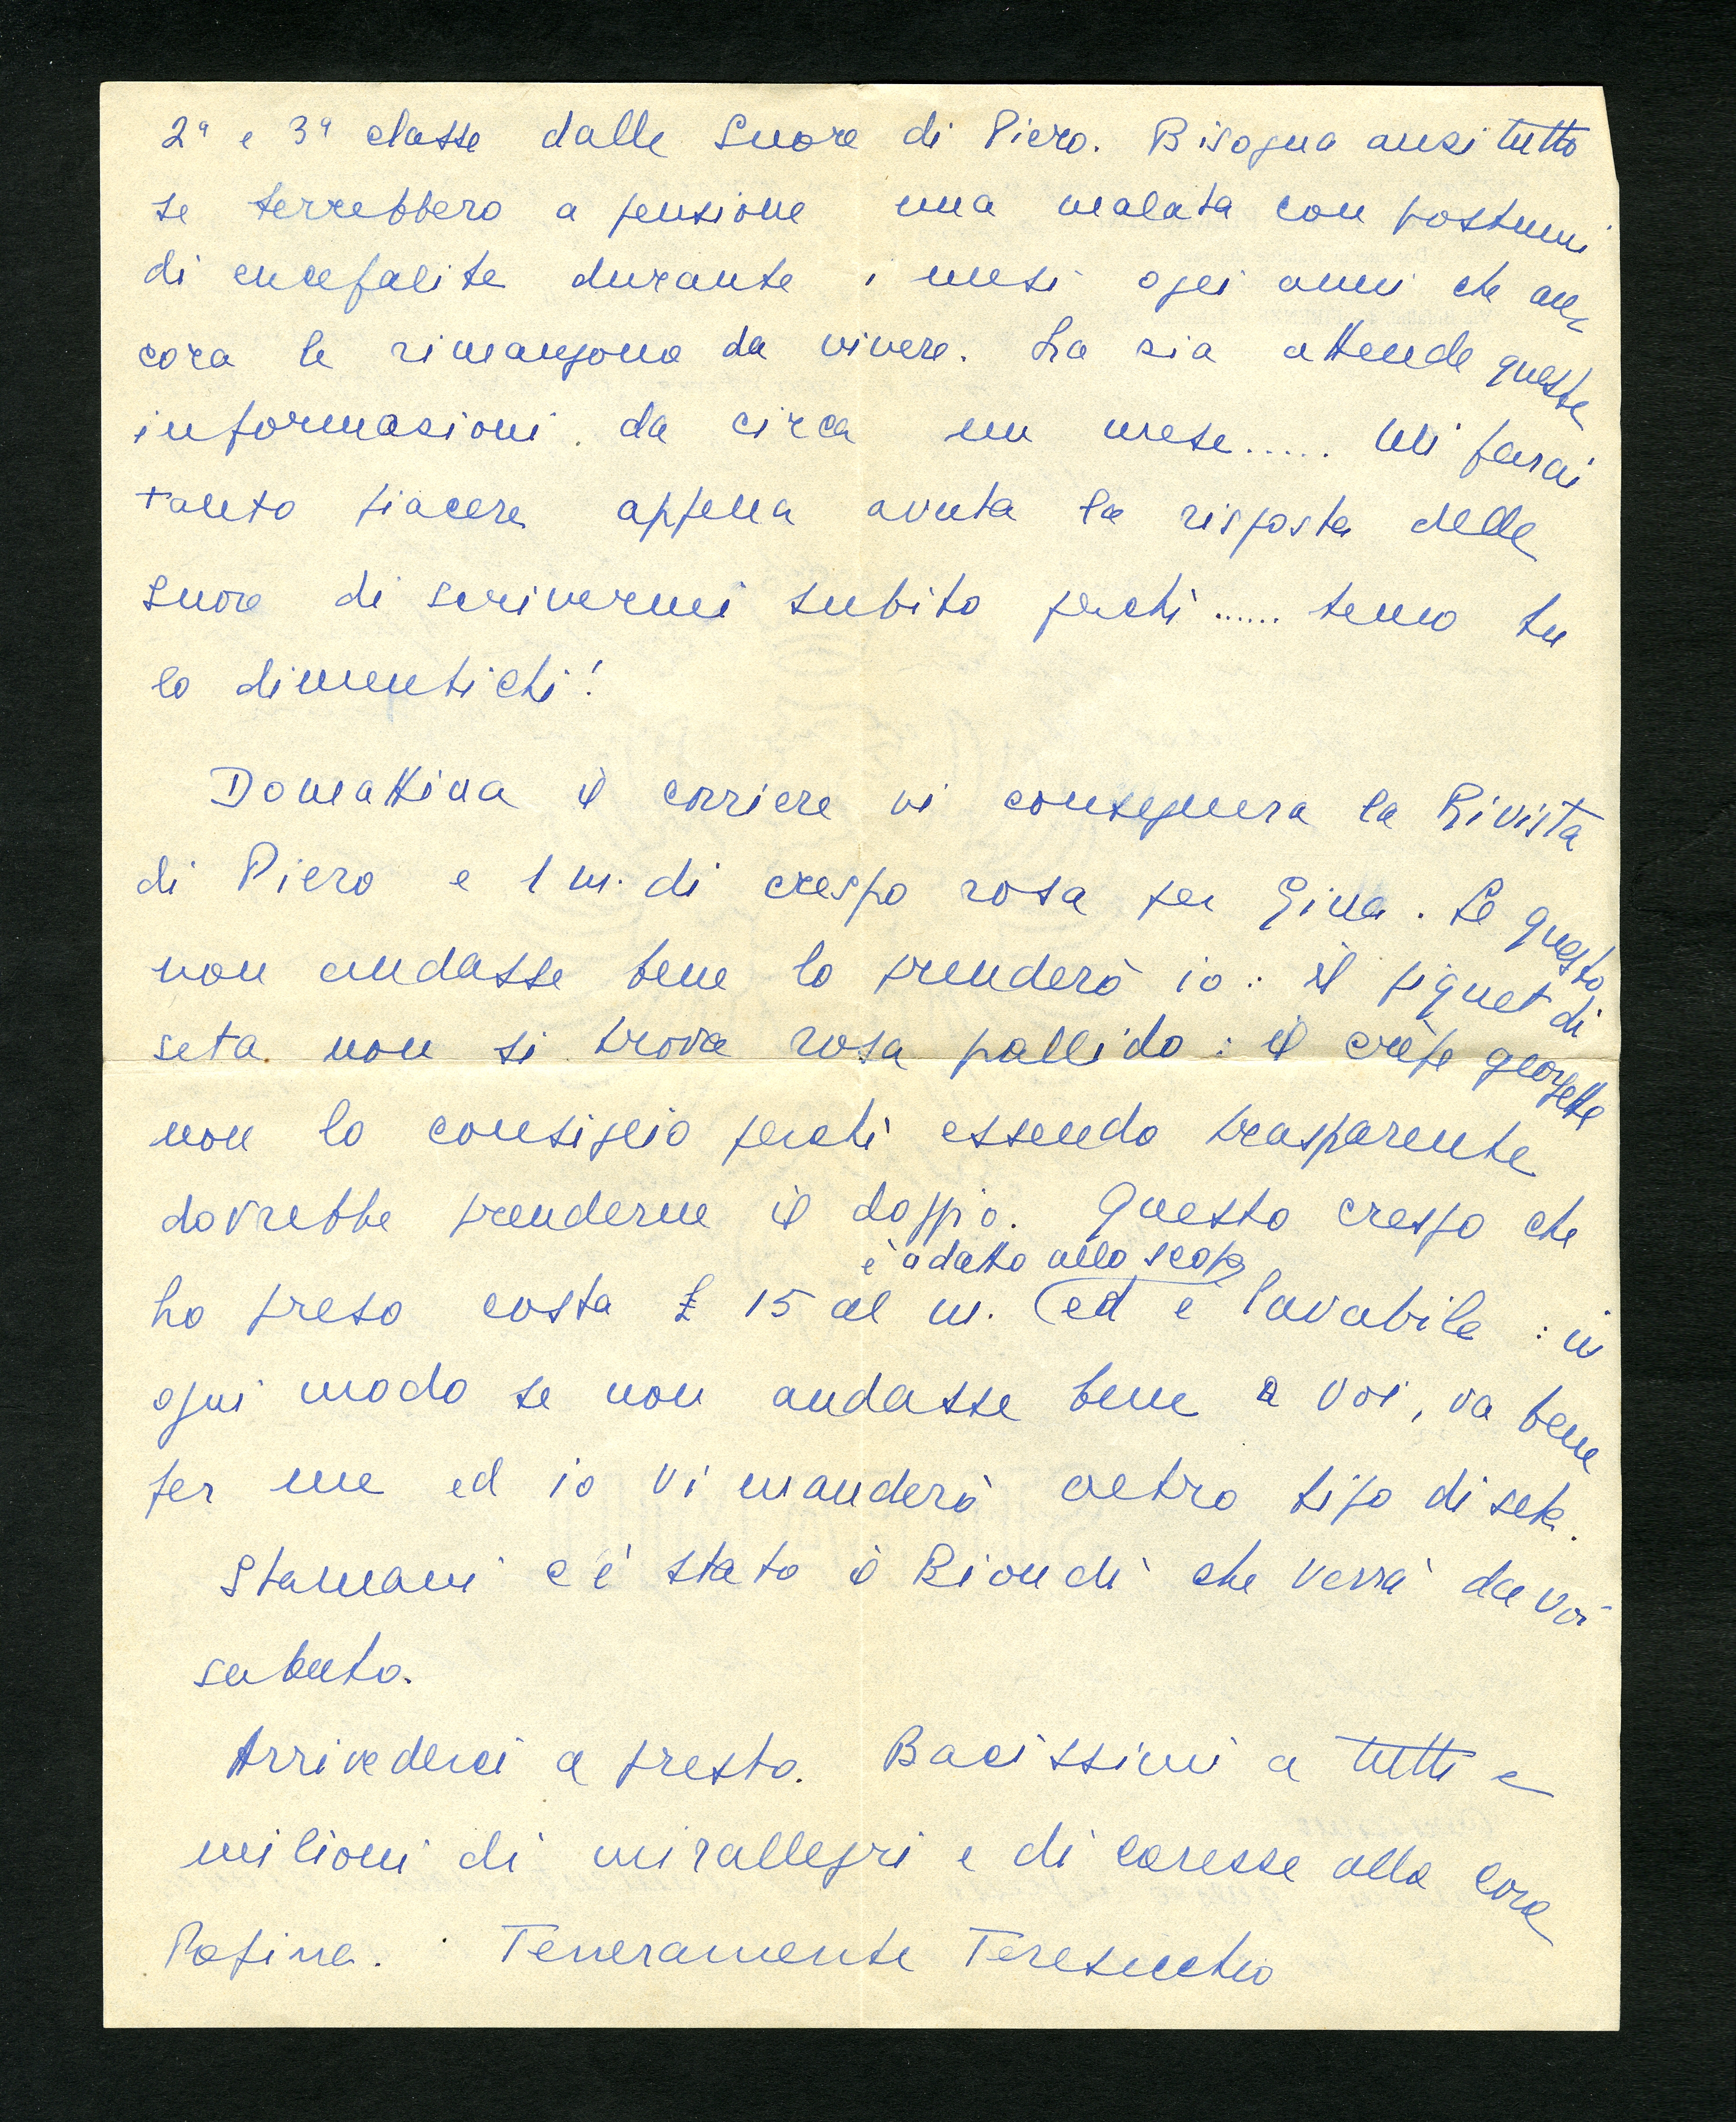 2ª e 3ª classe dalle Suore di Piero. Bisogna anzitutto
se terrebbero a pensione una malata con postumi
di encefalite durante i mesi o gli anni che an-
cora le rimangono da vivere. La zia attende queste
informazioni da circa un mese..... Mi farai
tanto piacere appena avuta la risposta delle
Suore di scrivermi subito perchè ...... temo tu
lo dimentichi!
Domattina il corriere vi consegnerà la Rivista
di Piero e 1 m. di crespo rosa per Gina. Se questo
non andasse bene lo prenderò io: il piquet di
seta non si trova rosa pallido: il crêpe georgette
non lo consiglio perchè essendo trasparente
dovrebbe prenderne il doppio. Questo crespo che
è adatto allo scopo
ho preso costa £ 15 al m. ed è lavabile: in
ogni modo se non andasse bene a voi, va bene
per me ed io vi manderò altro tipo di seta.
Stamani c'è stato il Biondi che verrà da voi
sabato.
Arrivederci a presto. Bacissimi a tutti e
milioni di mirallegri e di carezze alla cara
Teneramente